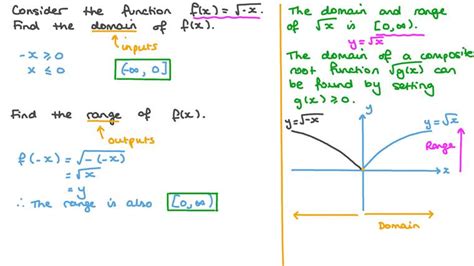 Consider the function f(x) = √-x.
Find the domain of f(x).
inputs
-x ⩾ 0
x ⩽ 0
(-∞, 0]
Find the range of f(x).
outputs
f(-x) = √-(-x)
= √x
= y
∴ The range is also [0, ∞)
The domain and range
of √x is [0, ∞).
y = √x
The domain of a composite
root function √g(x) can
be found by setting
g(x) ⩾ 0.
y = √-x
y
y = √x
Range
x
Domain